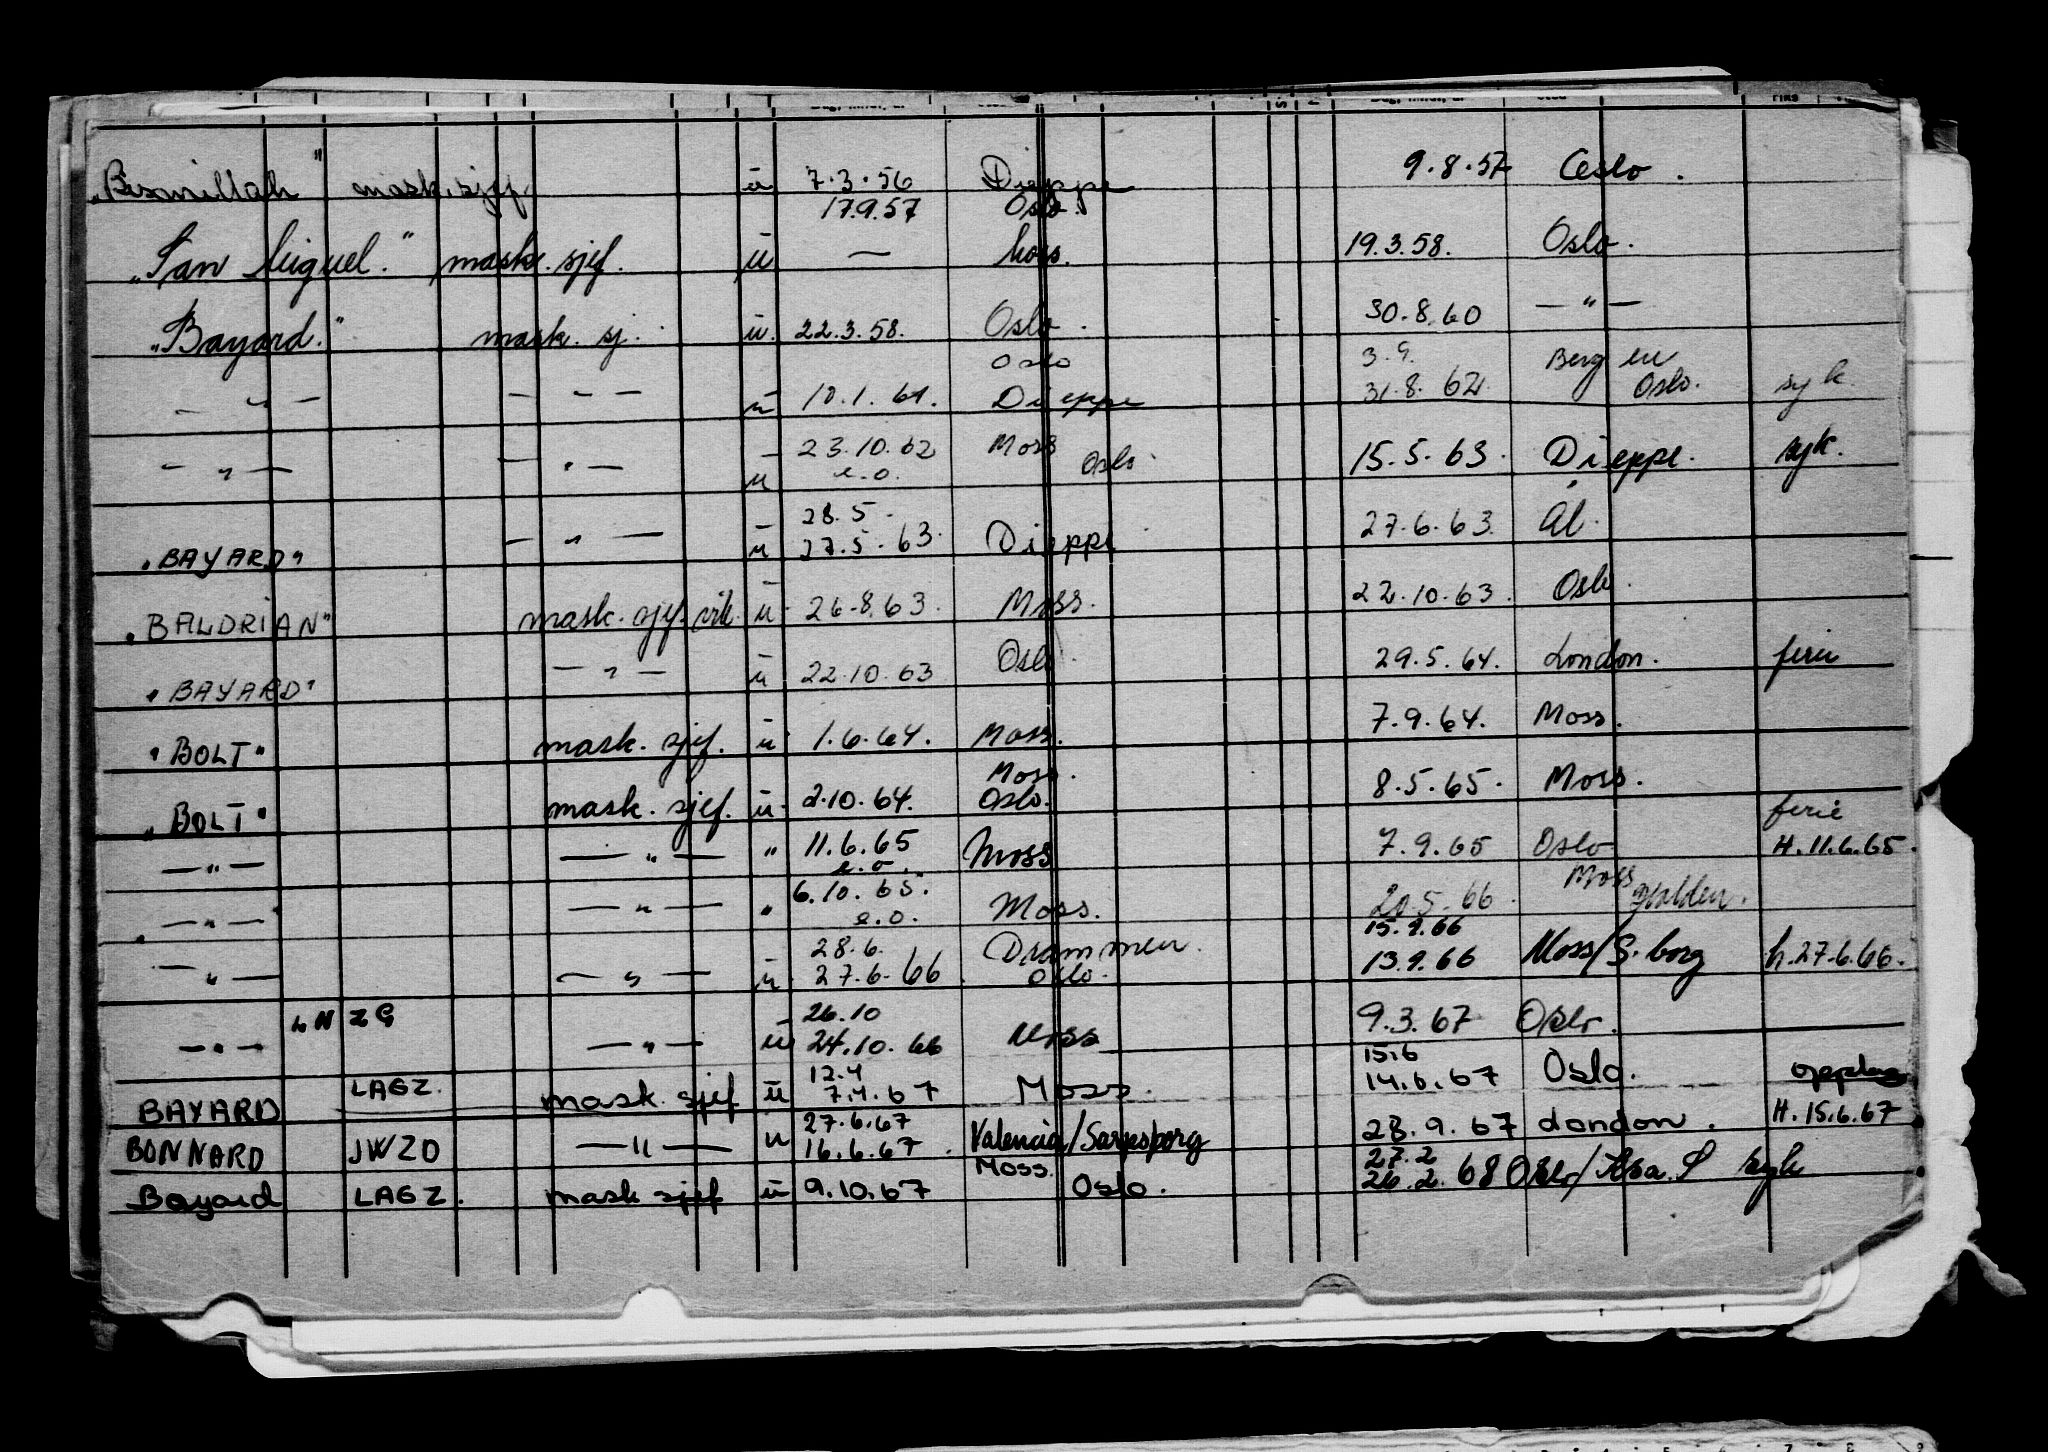 „Bismillah" mask.sjef. ū 7.3.56 Dieppe 9.8.57 Oslo.
17.9.57 Oslo.
„San Miguel." mask. sjef. ū — Moss. 19.3.58. Oslo.
„Bayard." mask. sj. ū. 22.3.58. Oslo. 30.8.60 — " —
Oslo 3.9. Bergen
— " — — " — ū 10.1.61. Dieppe 31.8.62. Oslo. syk.
— " — — " — ū 23.10.62 Moss 15.5.63. Dieppe. syk.
e.o. Oslo
28.5.
„BAYARD" — " — ū 27.5.63. Dieppe 27.6.63. Ål.
„BALDRIAN" mask. sjef. vik. ū 26.8.63. Moss. 22.10.63. Oslo.
„BAYARD" — " — ū 22.10.63 Oslo. 29.5.64. London. ferie
"BOLT" mask. sjef. ū 1.6.64. Moss. 7.9.64. Moss.
Moss.
„BOLT" mask. sjef. ū 2.10.64. Oslo. 8.5.65. Moss.
ferie
— " — — " — " 11.6.65 Moss 7.9.65 Oslo H.11.6.65.
e.o. Moss
— " — — " — " 6.10.65. Moss. 20.5.66. Halden.
e.o. 15.9.66
28.6. Drammen.
— " — — " — ū. 27.6.66. Oslo. 13.9.66 Moss/S.borg h.27.6.66.
LNZG 26.10
— " — — " — ū 24.10.66 Moss 9.3.67 Oslo.
12.4 15.6
BAYARD LAGZ. mask. sjef ū 7.4.67 Moss. 14.6.67 Oslo.
27.6.67
BONNARD JWZD — " — ū 16.6.67. Valencia/Sarpsborg 28.9.67 London. H.15.6.67
Moss. 27.2
Bayard LAGZ. mask sjef ū 9.10.67 Oslo. 26.2.68 Oslo/ syk